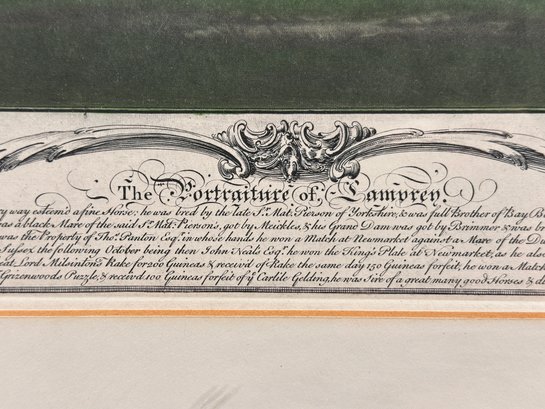 The Portraiture of Lamprey.
ry way esteem'd a fine Horse; he was bred by the late Sr. Mat: Pierson of Yorkshire, & was full Brother of Bay B
was a black Mare of the said Sr. Mat: Pierson's, got by Meickles, & his Grand Dam was got by Brimmer & was br
was the Property of Thos. Panton Esqr. in whose hands he won a Match at Newmarket against a Mare of the Du
Sussex the following October being then John Neals Esqr. he won the King's Plate at Newmarket, as he als
eat Lord Milsinton's Rake for 200 Guineas & receiv'd of Rake the same day 150 Guineas forfeit, he won a Match
Grizenwoods Puzzle, & receivd 100 Guineas forfeit of ye Carlile Gelding, he was Sire of a great many good Horses & di